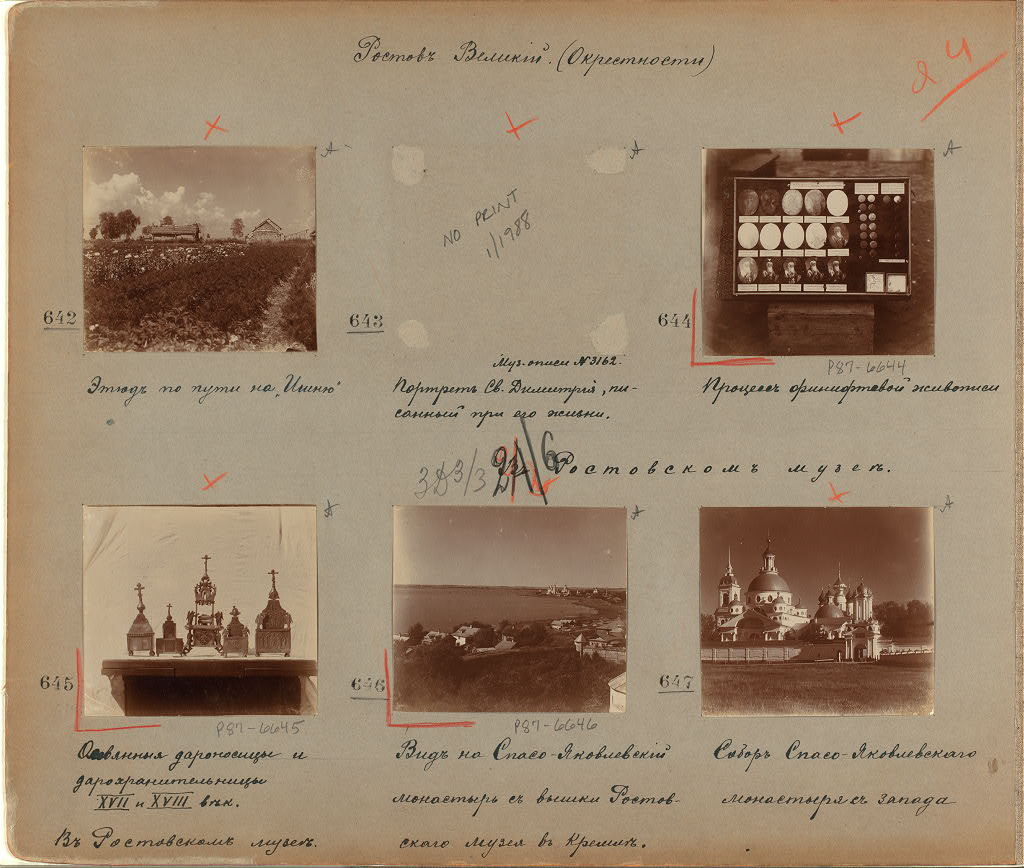 Ростовъ Великій. (Окрестности)
я 4
А
А
А
NO PRINT
1/1988
642
643
644
Муз. описи № 3162.
P87-6644
Этюдъ по пути на „Ишню"
Портретъ Св. Димитрія, пи-
санный при его жизни.
Процессъ финифтовой живописи
Ростовскомъ музеѣ.
А
А
А
645
646
647
P87-6645
P87-6646
Оловянныя дароносицы и
дарохранительницы
XVII и XVIII вѣк.
Въ Ростовскомъ музеѣ.
Видъ на Спасо-Яковлевскій
монастырь съ вышки Ростов-
скаго музея въ Кремлѣ.
Соборъ Спасо-Яковлевскаго
монастыря съ запада